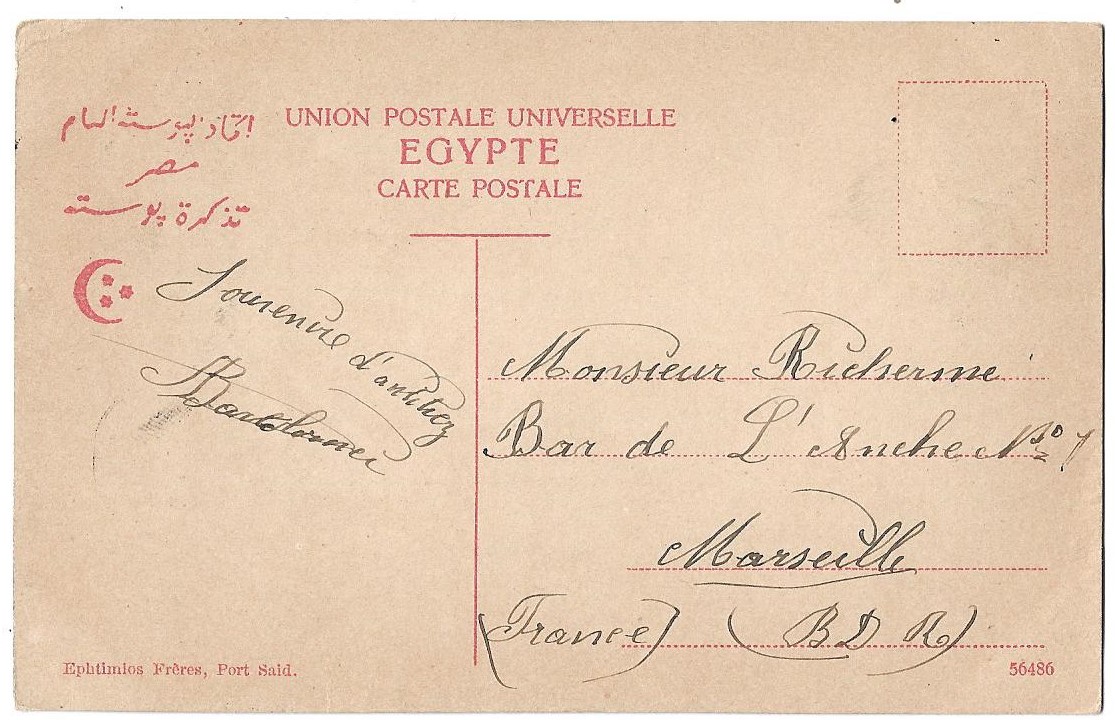 اتحاد بوسته العام
مصر
تذكرة بوسته
UNION POSTALE UNIVERSELLE
EGYPTE
CARTE POSTALE
Souvenire d'
Monsieur Richerme
Bar de L'Anche No 7
Marseille
(France) (BDR)
Ephtimios Frères, Port Said.
56486